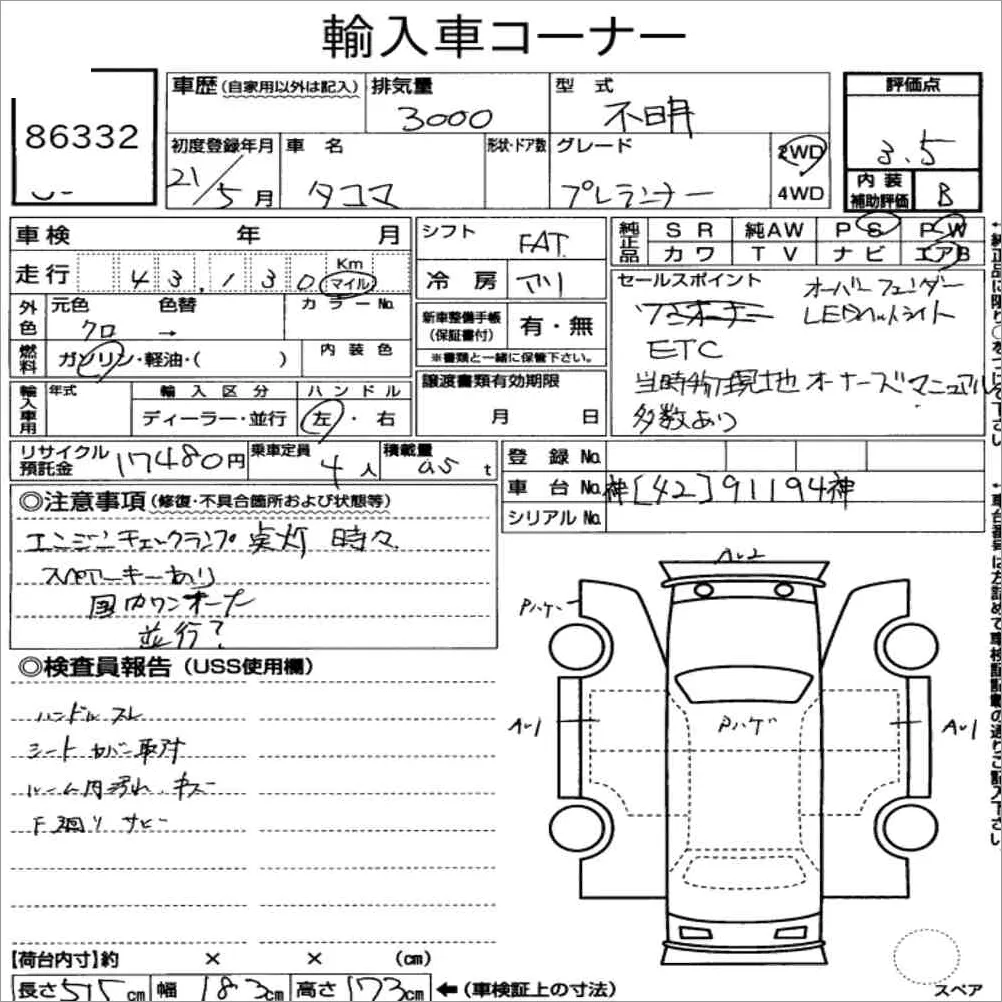 輸入車コーナー
86332
車歴(自家用以外は記入) 排気量 3000 型式 不明
評価点 3.5
初度登録年月 21/5月 車名 タコマ 形状・ドア数 グレード プレランナー 2WD 4WD
内装補助評価 B
車検 年 月
走行 43,130 Km マイル
外色 元色 クロ 色替 → カラーNo.
燃料 ガソリン・軽油・( ) 内装色
輸入車用 年式 輸入区分 ディーラー・並行 ハンドル 左・右
シフト FAT
冷房
新車整備手帳(保証書付) 有・無
※書類と一緒に保管下さい。
譲渡書類有効期限
月 日
純正品 SR 純AW PS PW
カワ TV ナビ エアB
セールスポイント オーバーフェンダー
ワンオーナー LEDヘットライト
ETC
当時物現地オーナーズマニュアル
多数あり
リサイクル預託金 17480円 乗車定員 4人 積載量 0.5t
登録No.
車台No. 神[42]91194神
シリアルNo.
◎注意事項(修復・不具合箇所および状態等)
エンジンチェックランプ点灯 時々
スペアーキーあり
国内ワンオーナー
並行?
◎検査員報告(USS使用欄)
ハンドルスレ
シートカバー取付
ルーム内汚れ、キズ
F廻りサビ
Pハゲ
Pハゲ
スペア
【荷台内寸】約 × × (cm)
長さ515cm 幅183cm 高さ173cm ←(車検証上の寸法)